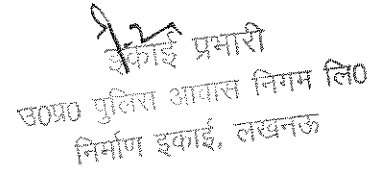 इकाई प्रभारी
उ0प्र0 पुलिस आवास निगम लि0
निर्माण इकाई, लखनऊ